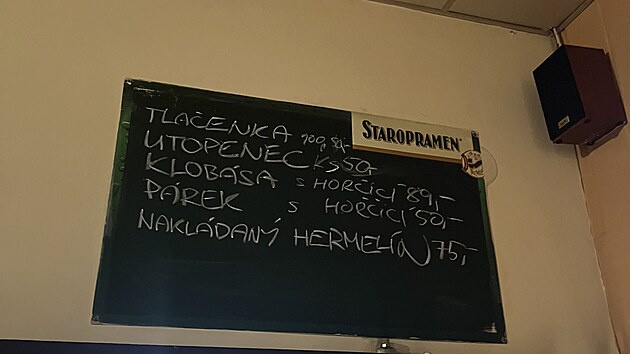 STAROPRAMEN
TLAČENKA 100g
UTOPENEC KS 50,-
KLOBÁSA S HOŘČICÍ 89,-
PÁREK S HOŘČICÍ 50,-
NAKLÁDANÝ HERMELÍN 75,-